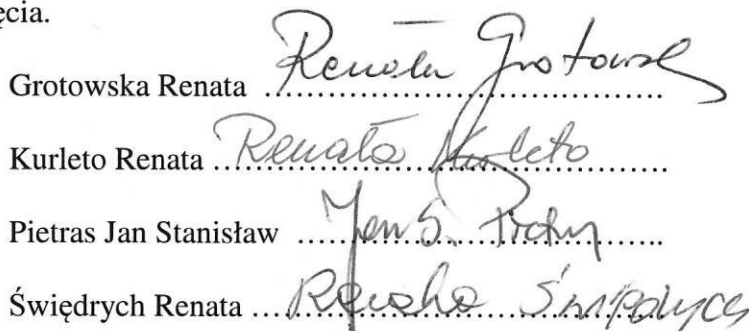 ęcia.
Grotowska Renata .......... Renata Grotowsk
Kurleto Renata .......... Renata Kurleto
Pietras Jan Stanisław .......... Jan S. Pietras
Świędrych Renata .......... Renata Świędrych